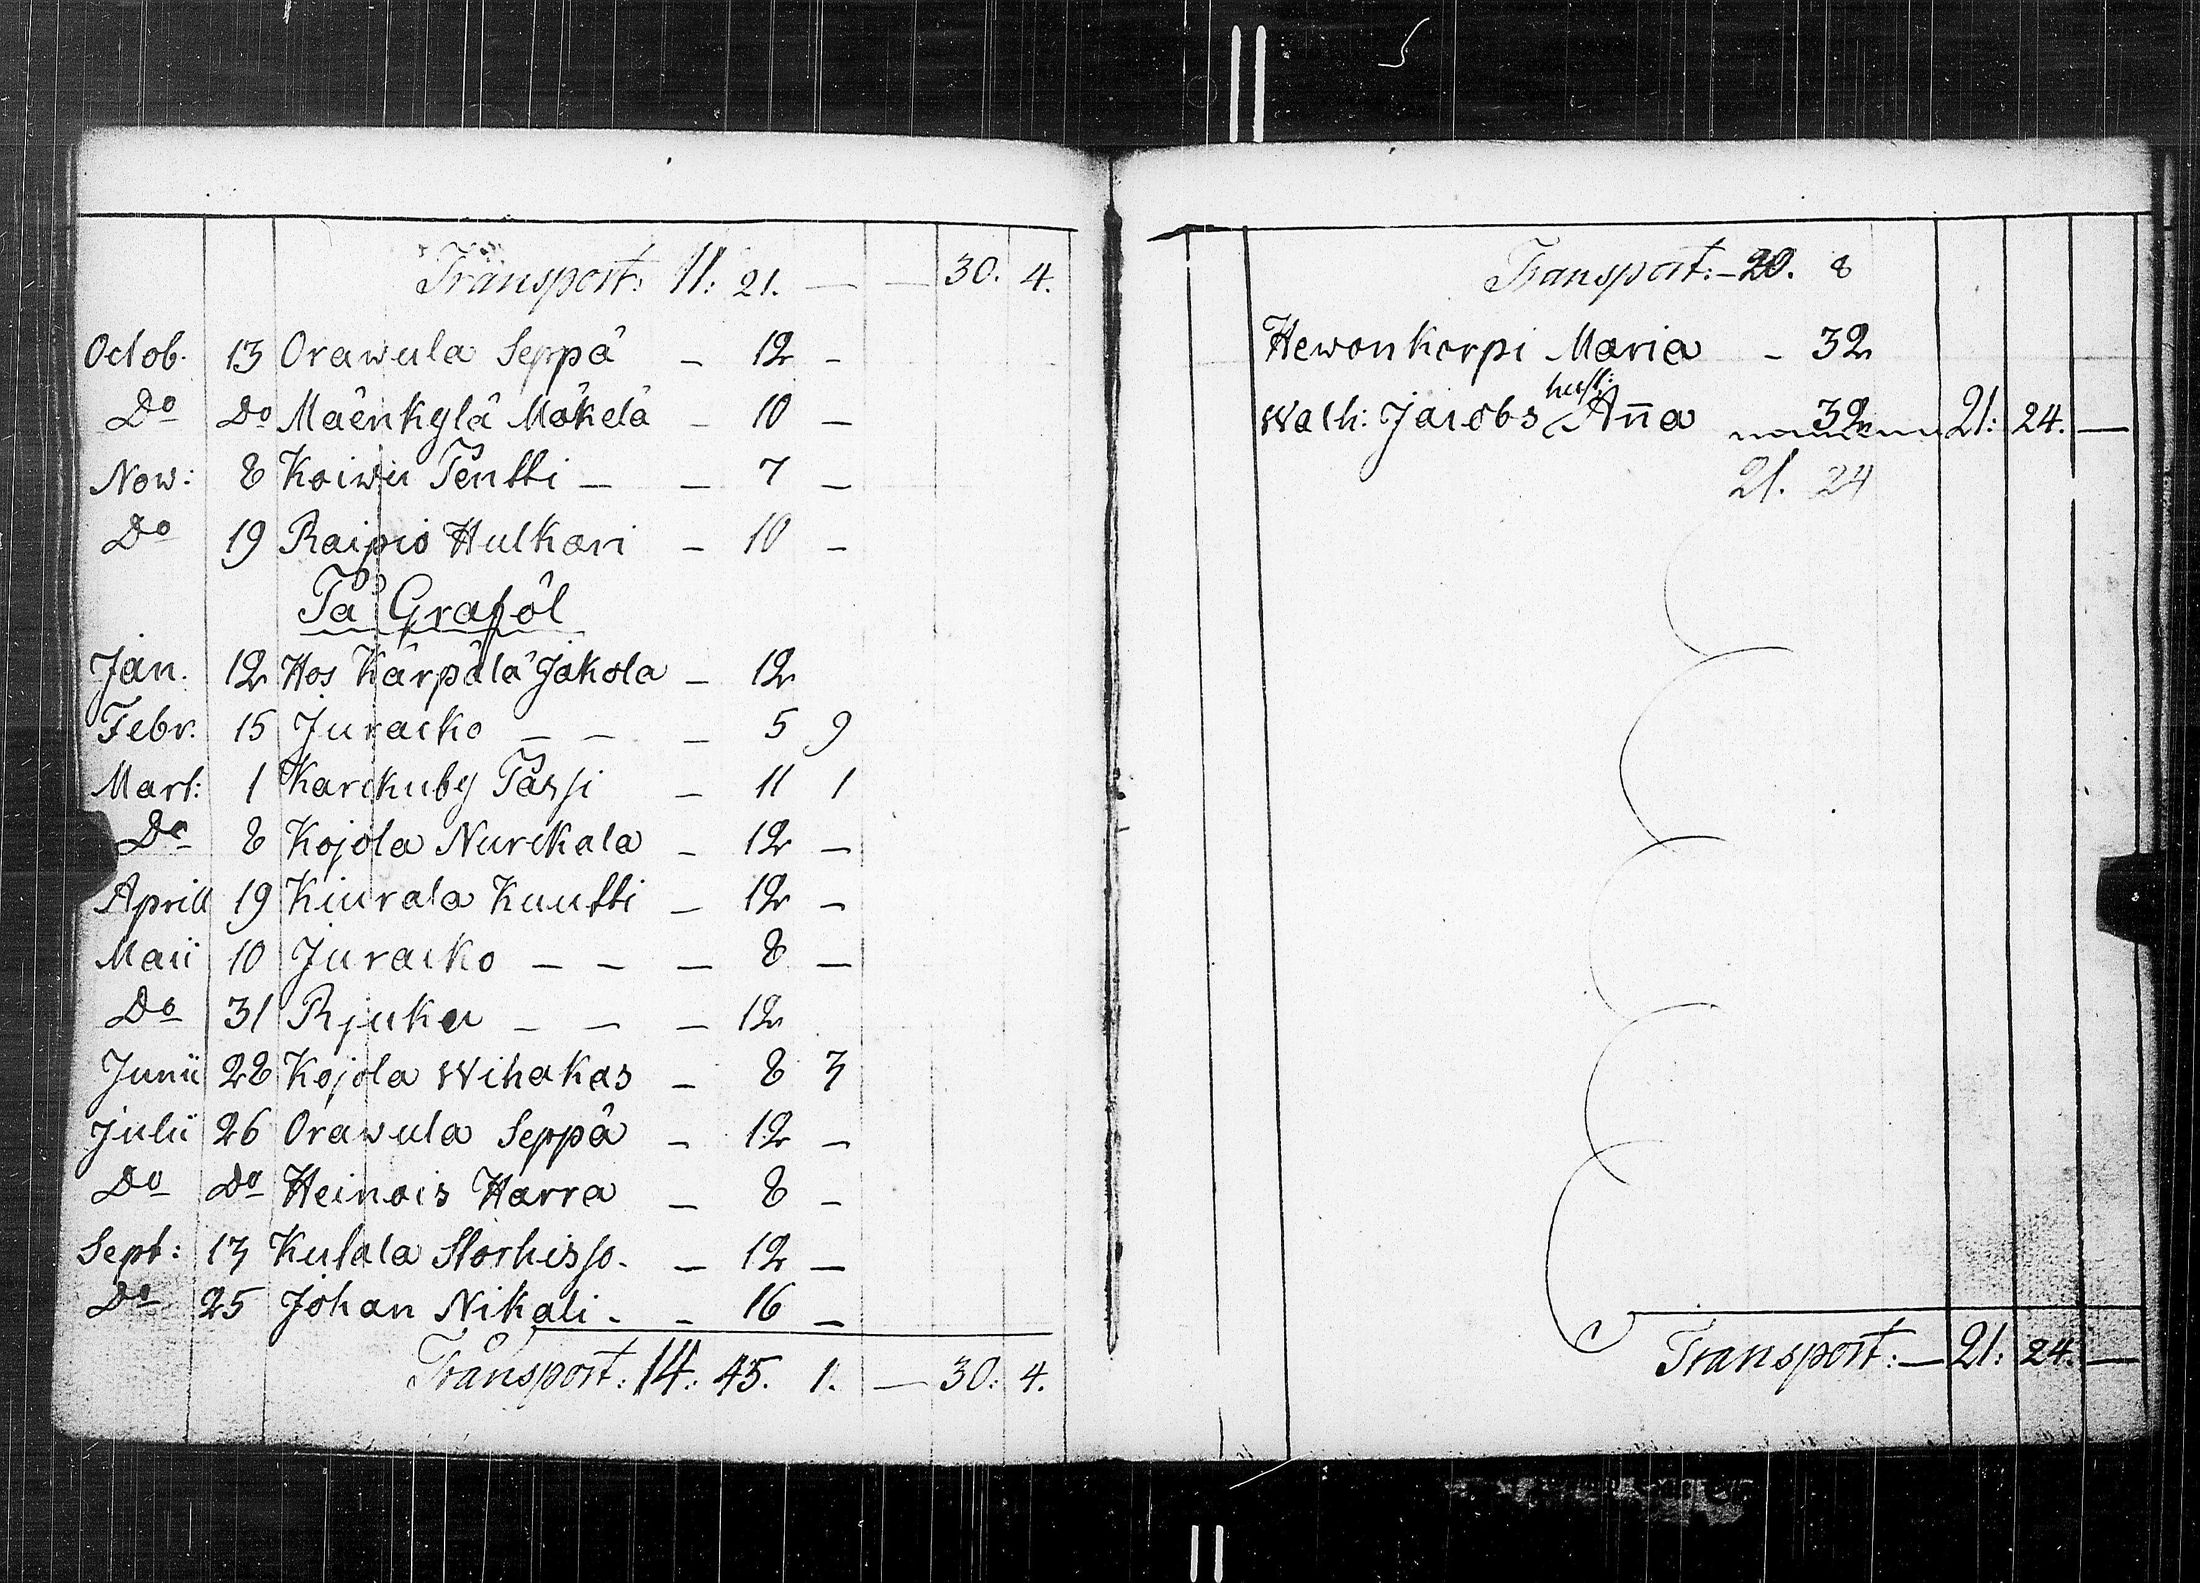 Transport: 11: 21. — — 30. 4.
Octob. 13 Orawula Seppä — 12 —
Do Do Mäenkylä Mäkelä — 10 —
Now: 8 Koiwu Pentti — — 7 —
Do 19 Raipio Hulkari — 10 —
På Graföl
Jan. 12 Hos Kärpälä Jakola — 12
Febr. 15 Juracko — — — 5 9
Mart: 1 Karckuby Passi — 11 1
Do 8 Kojola Nurckala — 12 —
Aprill 19 Kiurala Kuutti — 12 —
Maii 10 Juracko — — — 8 —
Do 31 Rjuku — — — 12
Junii 28 Kojola Wihakas — 8 3
Julii 26 Orawula Seppä — 12 —
Do Do Heinois Harra — 8 —
Sept: 13 Kulala Storhisso. — 12 —
Do 25 Johan Nikali. — 16 —
Transport: 14: 45. 1. — 30: 4.
Transport: — 20. 8
Hewonkorpi Maria — 32
hust:
Walh: Jacobs Anna 32 21: 24. —
21. 24
Transport: — 21: 24: —